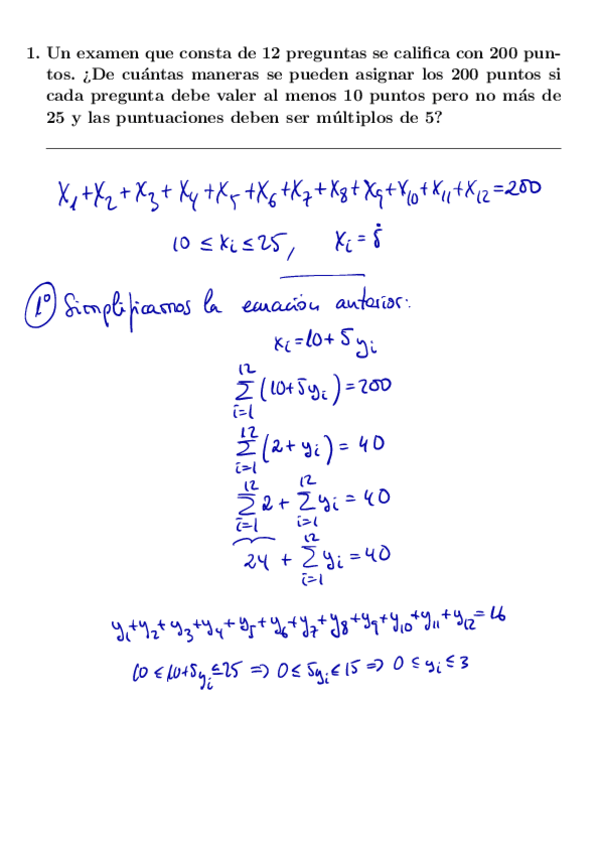 1. Un examen que consta de 12 preguntas se califica con 200 pun-
tos. ¿De cuántas maneras se pueden asignar los 200 puntos si
cada pregunta debe valer al menos 10 puntos pero no más de
25 y las puntuaciones deben ser múltiplos de 5?
X₁+X₂+X₃+X₄+X₅+X₆+X₇+X₈+X₉+X₁₀+X₁₁+X₁₂=200
10 ≤ Xᵢ ≤ 25, Xᵢ = 5̇
1º Simplificamos la ecuación anterior:
xᵢ=10+5yᵢ
12
Σ(10+5yᵢ)=200
i=1
12
Σ(2+yᵢ)=40
i=1
12 12
Σ2+Σyᵢ=40
i=1 i=1
12
24+Σyᵢ=40
i=1
y₁+y₂+y₃+y₄+y₅+y₆+y₇+y₈+y₉+y₁₀+y₁₁+y₁₂=16
10≤10+5yᵢ≤25 => 0≤5yᵢ≤15 => 0≤yᵢ≤3